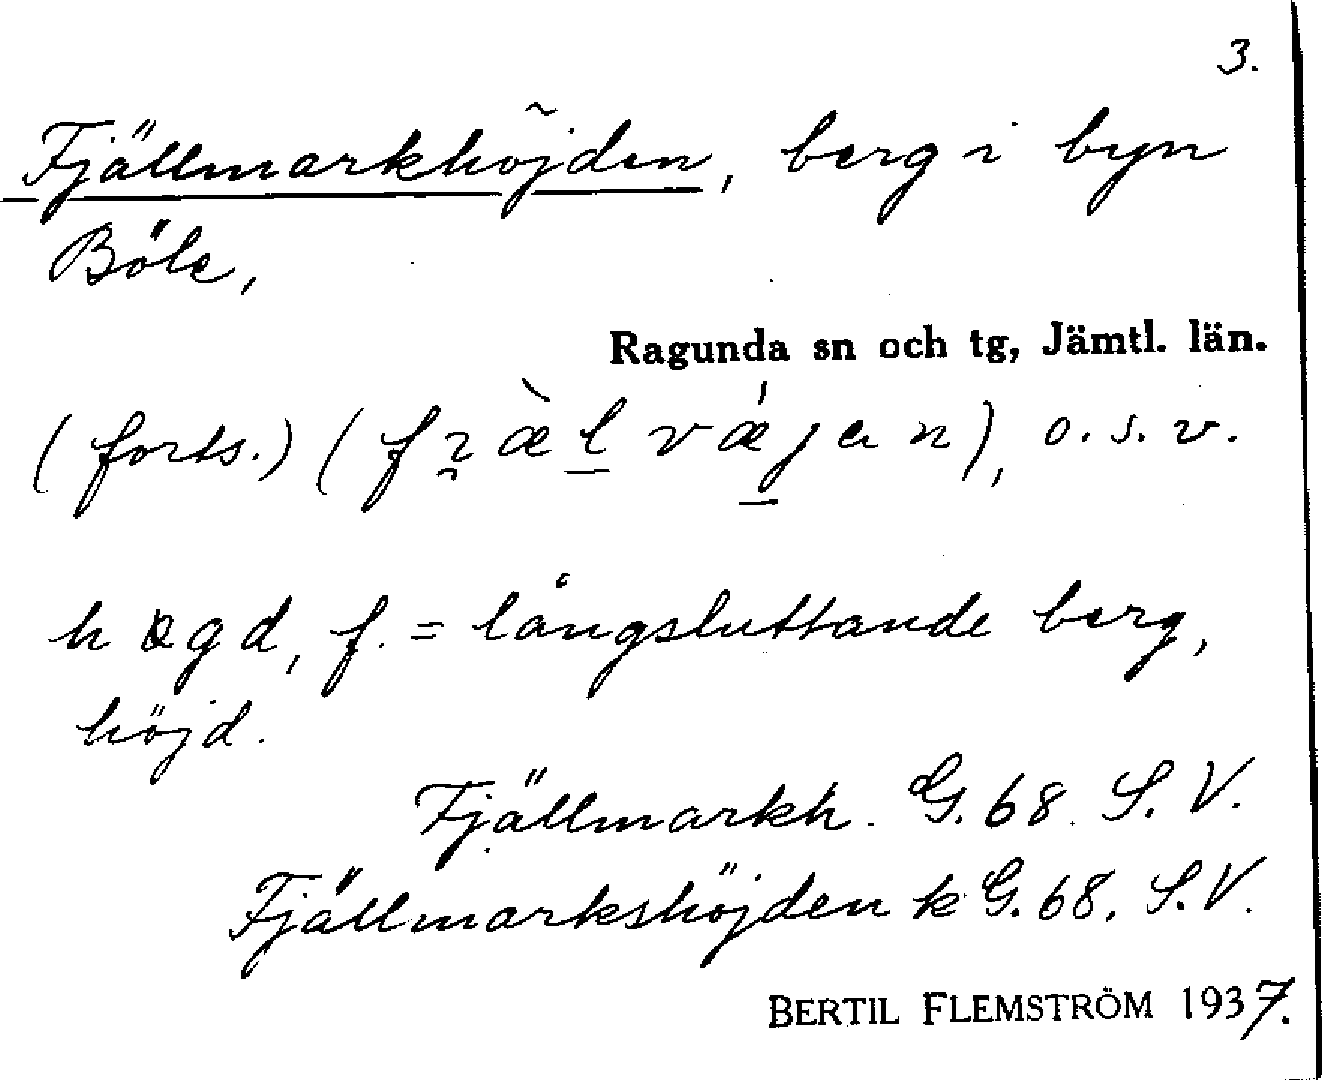 3.
Fjällmarkhöjden, berg i byn
Böle,
Ragunda sn och tg, Jämtl. län.
(forts.) (fı̯æ̀l̠vǽ̠jan), o.s.v.
høgd, f. = långsluttande berg,
höjd.
Fjällmarkh. G.68. S.V.
Fjällmarkshöjden k G.68. S.V.
BERTIL FLEMSTRÖM 1937.